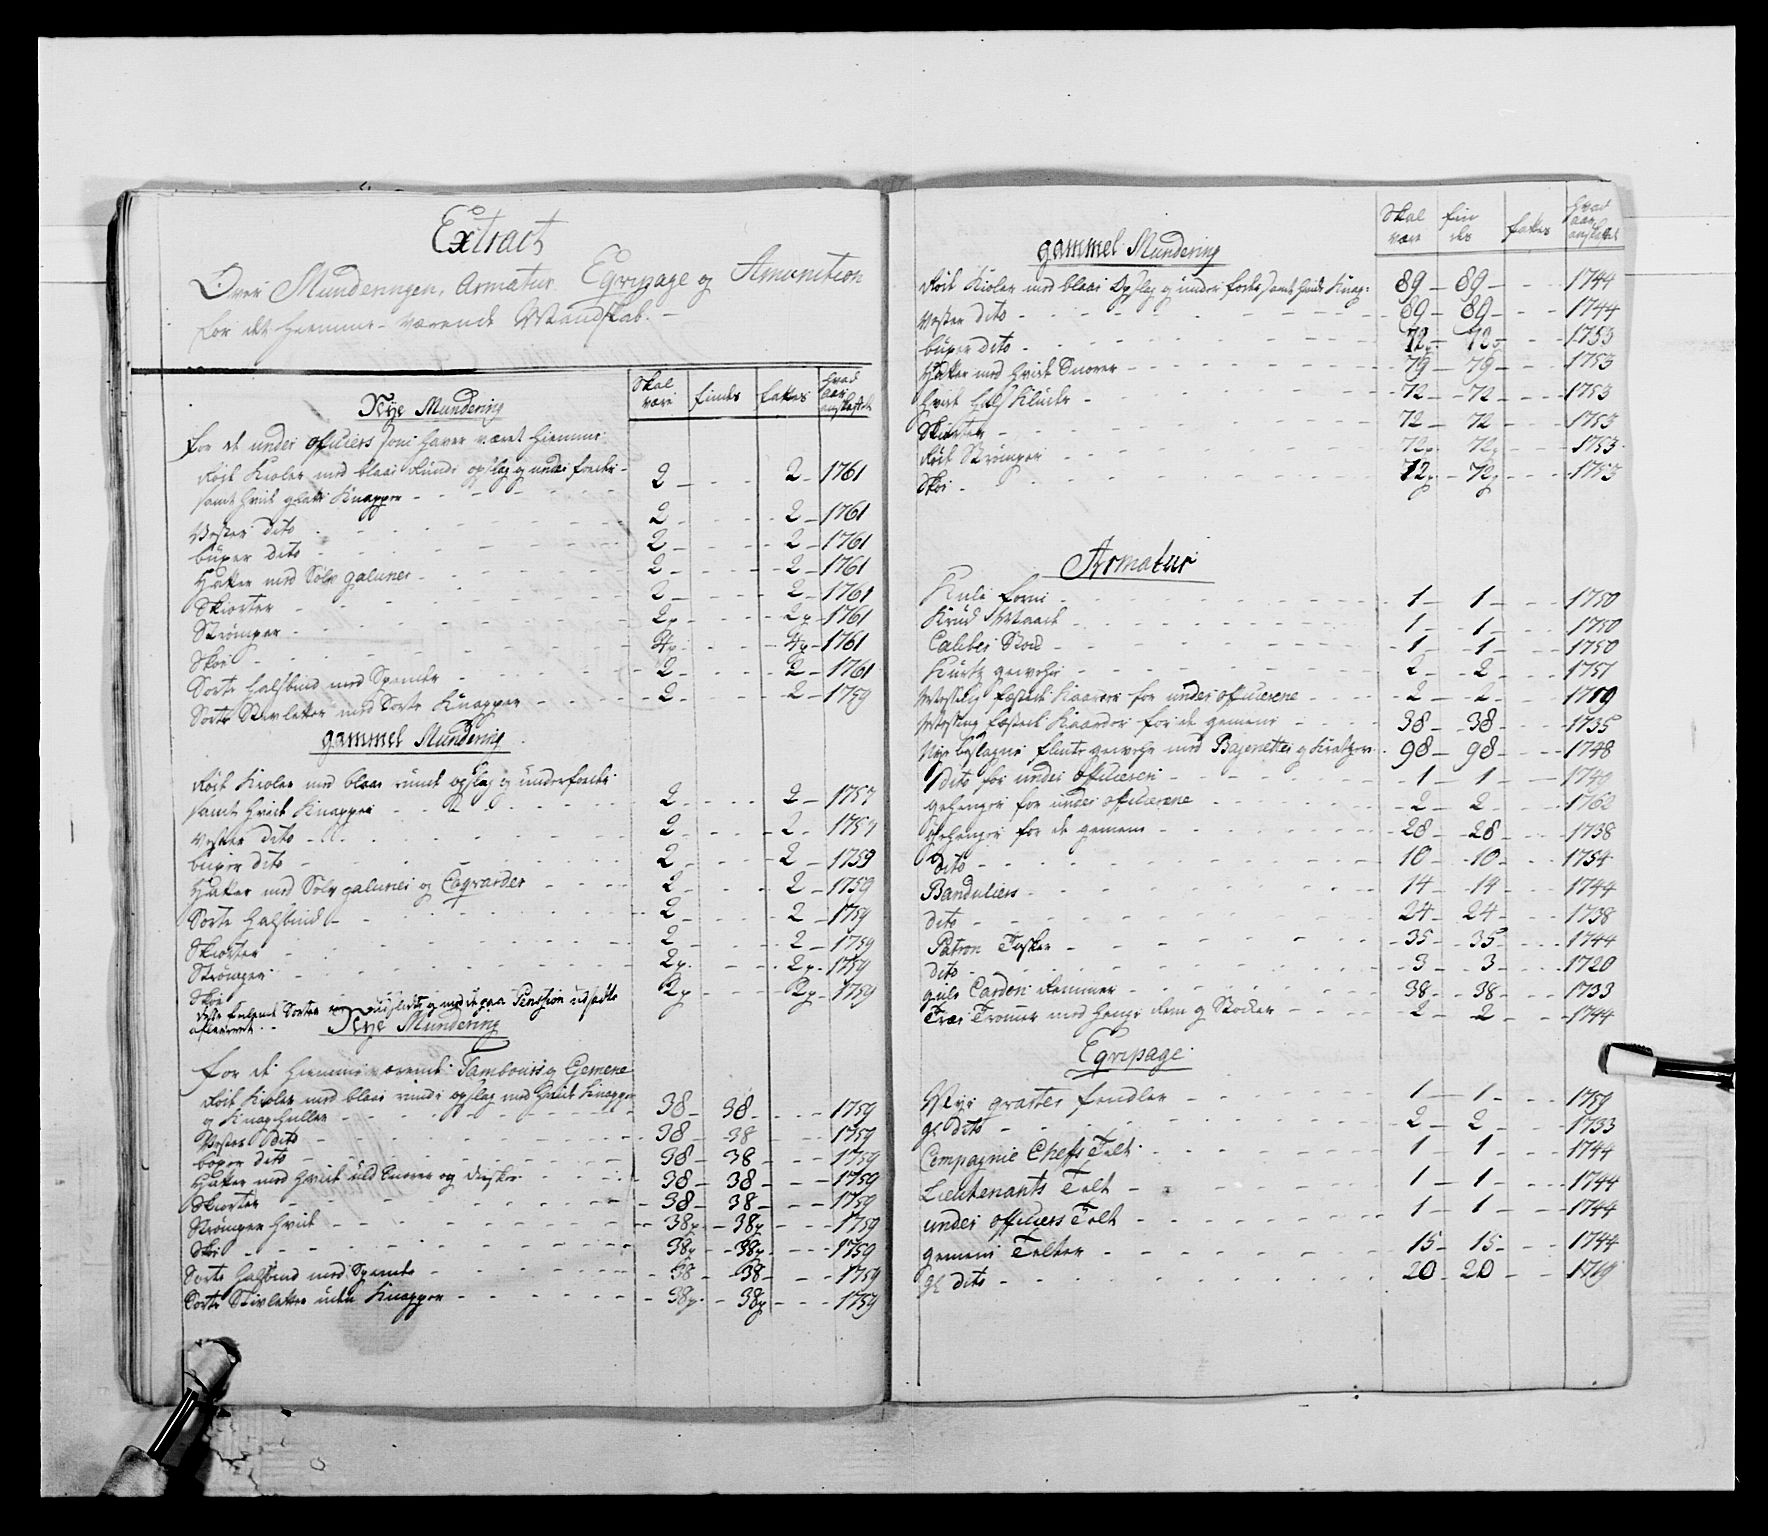 Extract
Over Munderingen, Armatur Eqvipage og Amunition
for det hiemme-værende Mandskab.
Skal være | findes | fattes | hvad aar anskaffet
Nÿe Mundering
for de under officiers som haver været hiemme
Röde Kioler med blaae runde opslag og under foeder
samt hvid glatte Knapper 2 - 2 1761
Vester dito 2 - 2 1761
buxer dito 2 - 2 1761
Hatter med Sölv galuner 2 - 2 1761
Skiorter 2 - 2 1761
Strömper 2p - 2p 1761
Skoe 4p - 4p 1761
Sorte Halsbind med Spender 2 - 2 1761
Sorte Stivletter med Sorte Knapper 2 - 2 1759
gammel Mundering
Röde Kioler med blaae runde opslag og underfoeder
samt hvide Knapper 2 - 2 1757
Vester dito 2 - 2 1757
buxer dito 2 - 2 1759
Hatter med Sölv galuner og Coqvarder 2 - 2 1759
Sorte Halsbind 2 - 2 1759
Skiorter 2 - 2 1759
Strömper 2p - 2p 1759
Skoe 2p - 2p 1759
og med de paa Pension udsatte
afleveret
Nÿe Mundering
for de hiemmeværende Tambours og Gemene
Röde Kioler med blaae runde opslag med hvide Knapper
og Knap huller 38 38 - 1759
Vester dito 38 38 - 1759
boxer dito 38 38 - 1759
Hatter med hvide uld Snorer og dusker 38 38 - 1759
Skiorter 38 38 - 1759
Strömper hvide 38p 38p - 1759
Skoe 38p 38p - 1759
Sorte Halsbind med Spender 38 38 - 1759
Sorte Stivletter uden Knapper 38p 38p - 1759
Skal være | findes | fattes | hvad aar anskaffet
gammel Mundering
Röde Kioler med blaae Opslag og under foeder samt hvide Knap: 89 89 - 1744
Vester dito 89 89 - 1744
buxer dito 72 72 - 1753
Hatter med hvide Snorer 79 79 - 1753
hvide hals Klude 72 72 - 1753
Skiorter 72 72 - 1753
Röde Strömper 72p 72p - 1753
Skoe 72p 72p - 1753
Armatur
Kule form 1 1 - 1750
Krud Maade 1 1 - 1750
Caliber Stok 1 1 - 1750
Kurtz gevehr 2 2 - 1757
Messing fæstede Kaarder for under officerene 2 2 - 1719
Messing fæstede Kaarder for de gemene 38 38 - 1735
Nye beslagne flinte gevehr med Bajonetter og Kradtzer 98 98 - 1748
1 dito for under officeren 1 1 - 1749
gehenger for under officerene 2 2 - 1762
gehenger for de gemene 28 28 - 1738
dito 10 10 - 1754
Banduliers 14 14 - 1744
dito 24 24 - 1738
Patron Tasker 35 35 - 1744
dito 3 3 - 1720
gule Carden Remmer 38 38 - 1733
Træe Tromer med henge Rem og Stocker 2 2 - 1744
Eqvipage
Nye Fendler 1 1 - 1759
gl dito 2 2 - 1733
Compagnie Chefs Telt 1 1 - 1744
Lieutenants Telt 1 1 - 1744
under officiers Telt 1 1 - 1744
gemene Telter 15 15 - 1744
gl dito 20 20 - 1719